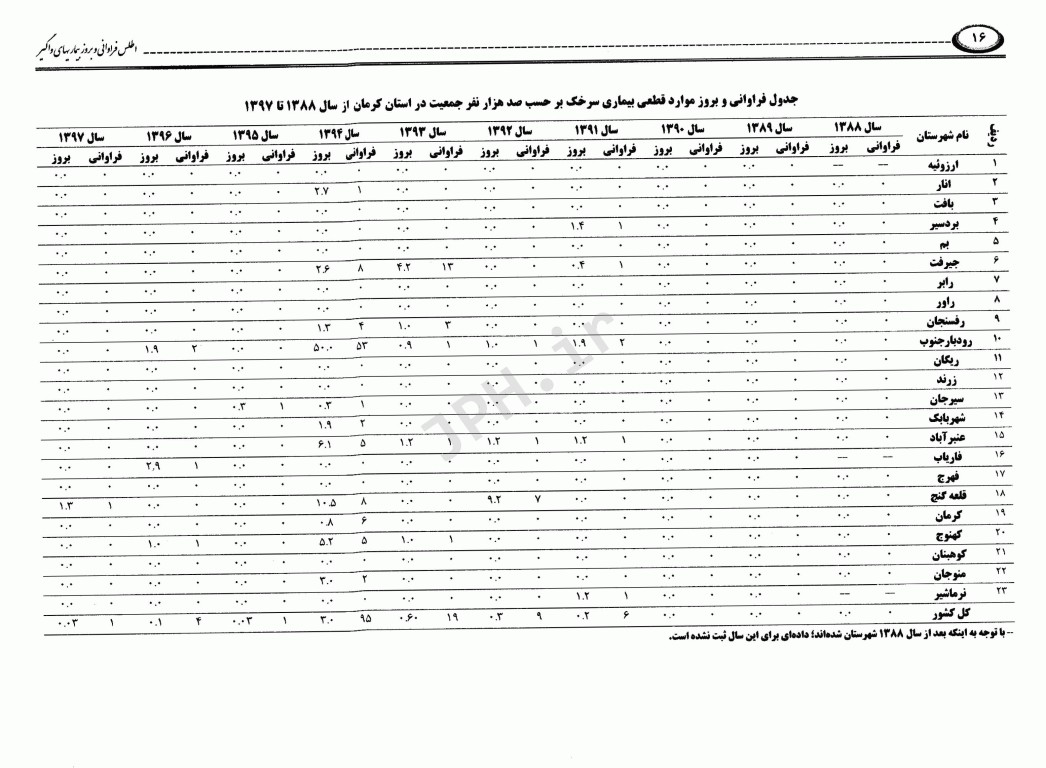 ۱۶ اطلس فراوانی و بروز بیماریهای واگیر
جدول فراوانی و بروز موارد قطعی بیماری سرخک بر حسب صد هزار نفر جمعیت در استان کرمان از سال ۱۳۸۸ تا ۱۳۹۷
ردیف نام شهرستان سال ۱۳۸۸ سال ۱۳۸۹ سال ۱۳۹۰ سال ۱۳۹۱ سال ۱۳۹۲ سال ۱۳۹۳ سال ۱۳۹۴ سال ۱۳۹۵ سال ۱۳۹۶ سال ۱۳۹۷
فراوانی بروز فراوانی بروز فراوانی بروز فراوانی بروز فراوانی بروز فراوانی بروز فراوانی بروز فراوانی بروز فراوانی بروز فراوانی بروز
۱ ارزوئیه -- -- ۰ ۰.۰ ۰ ۰.۰ ۰ ۰.۰ ۰ ۰.۰ ۰ ۰.۰ ۰ ۰.۰ ۰ ۰.۰ ۰ ۰.۰ ۰ ۰.۰
۲ انار ۰ ۰.۰ ۰ ۰.۰ ۰ ۰.۰ ۰ ۰.۰ ۰ ۰.۰ ۰ ۰.۰ ۱ ۲.۷ ۰ ۰.۰ ۰ ۰.۰ ۰ ۰.۰
۳ بافت ۰ ۰.۰ ۰ ۰.۰ ۰ ۰.۰ ۰ ۰.۰ ۰ ۰.۰ ۰ ۰.۰ ۰ ۰.۰ ۰ ۰.۰ ۰ ۰.۰ ۰ ۰.۰
۴ بردسیر ۰ ۰.۰ ۰ ۰.۰ ۰ ۰.۰ ۱ ۱.۴ ۰ ۰.۰ ۰ ۰.۰ ۰ ۰.۰ ۰ ۰.۰ ۰ ۰.۰ ۰ ۰.۰
۵ بم ۰ ۰.۰ ۰ ۰.۰ ۰ ۰.۰ ۰ ۰.۰ ۰ ۰.۰ ۰ ۰.۰ ۰ ۰.۰ ۰ ۰.۰ ۰ ۰.۰ ۰ ۰.۰
۶ جیرفت ۰ ۰.۰ ۰ ۰.۰ ۰ ۰.۰ ۱ ۰.۴ ۰ ۰.۰ ۱۳ ۴.۲ ۸ ۲.۶ ۰ ۰.۰ ۰ ۰.۰ ۰ ۰.۰
۷ رابر ۰ ۰.۰ ۰ ۰.۰ ۰ ۰.۰ ۰ ۰.۰ ۰ ۰.۰ ۰ ۰.۰ ۰ ۰.۰ ۰ ۰.۰ ۰ ۰.۰ ۰ ۰.۰
۸ راور ۰ ۰.۰ ۰ ۰.۰ ۰ ۰.۰ ۰ ۰.۰ ۰ ۰.۰ ۰ ۰.۰ ۰ ۰.۰ ۰ ۰.۰ ۰ ۰.۰ ۰ ۰.۰
۹ رفسنجان ۰ ۰.۰ ۰ ۰.۰ ۰ ۰.۰ ۰ ۰.۰ ۰ ۰.۰ ۳ ۱.۰ ۴ ۱.۳ ۰ ۰.۰ ۰ ۰.۰ ۰ ۰.۰
۱۰ رودبارجنوب ۰ ۰.۰ ۰ ۰.۰ ۰ ۰.۰ ۲ ۱.۹ ۱ ۱.۰ ۱ ۰.۹ ۵۳ ۵۰.۰ ۰ ۰.۰ ۲ ۱.۹ ۰ ۰.۰
۱۱ ریگان ۰ ۰.۰ ۰ ۰.۰ ۰ ۰.۰ ۰ ۰.۰ ۰ ۰.۰ ۰ ۰.۰ ۰ ۰.۰ ۰ ۰.۰ ۰ ۰.۰ ۰ ۰.۰
۱۲ زرند ۰ ۰.۰ ۰ ۰.۰ ۰ ۰.۰ ۰ ۰.۰ ۰ ۰.۰ ۰ ۰.۰ ۰ ۰.۰ ۰ ۰.۰ ۰ ۰.۰ ۰ ۰.۰
۱۳ سیرجان ۰ ۰.۰ ۰ ۰.۰ ۰ ۰.۰ ۰ ۰.۰ ۰ ۰.۰ ۰ ۰.۰ ۱ ۰.۳ ۱ ۰.۳ ۰ ۰.۰ ۰ ۰.۰
۱۴ شهربابک ۰ ۰.۰ ۰ ۰.۰ ۰ ۰.۰ ۰ ۰.۰ ۰ ۰.۰ ۰ ۰.۰ ۲ ۱.۹ ۰ ۰.۰ ۰ ۰.۰ ۰ ۰.۰
۱۵ عنبرآباد ۰ ۰.۰ ۰ ۰.۰ ۰ ۰.۰ ۱ ۱.۲ ۱ ۱.۲ ۱ ۱.۲ ۵ ۶.۱ ۰ ۰.۰ ۰ ۰.۰ ۰ ۰.۰
۱۶ فاریاب -- -- ۰ ۰.۰ ۰ ۰.۰ ۰ ۰.۰ ۰ ۰.۰ ۰ ۰.۰ ۰ ۰.۰ ۰ ۰.۰ ۱ ۲.۹ ۰ ۰.۰
۱۷ فهرج ۰ ۰.۰ ۰ ۰.۰ ۰ ۰.۰ ۰ ۰.۰ ۰ ۰.۰ ۰ ۰.۰ ۰ ۰.۰ ۰ ۰.۰ ۰ ۰.۰ ۰ ۰.۰
۱۸ قلعه گنج ۰ ۰.۰ ۰ ۰.۰ ۰ ۰.۰ ۰ ۰.۰ ۷ ۹.۲ ۰ ۰.۰ ۸ ۱۰.۵ ۰ ۰.۰ ۰ ۰.۰ ۱ ۱.۳
۱۹ کرمان ۰ ۰.۰ ۰ ۰.۰ ۰ ۰.۰ ۰ ۰.۰ ۰ ۰.۰ ۰ ۰.۰ ۶ ۰.۸ ۰ ۰.۰ ۰ ۰.۰ ۰ ۰.۰
۲۰ کهنوج ۰ ۰.۰ ۰ ۰.۰ ۰ ۰.۰ ۰ ۰.۰ ۰ ۰.۰ ۱ ۱.۰ ۵ ۵.۲ ۰ ۰.۰ ۱ ۱.۰ ۰ ۰.۰
۲۱ کوهبنان ۰ ۰.۰ ۰ ۰.۰ ۰ ۰.۰ ۰ ۰.۰ ۰ ۰.۰ ۰ ۰.۰ ۰ ۰.۰ ۰ ۰.۰ ۰ ۰.۰ ۰ ۰.۰
۲۲ منوجان ۰ ۰.۰ ۰ ۰.۰ ۰ ۰.۰ ۰ ۰.۰ ۰ ۰.۰ ۰ ۰.۰ ۲ ۳.۰ ۰ ۰.۰ ۰ ۰.۰ ۰ ۰.۰
۲۳ نرماشیر -- -- ۰ ۰.۰ ۰ ۰.۰ ۱ ۱.۲ ۰ ۰.۰ ۰ ۰.۰ ۰ ۰.۰ ۰ ۰.۰ ۰ ۰.۰ ۰ ۰.۰
کل کشور ۰ ۰.۰ ۰ ۰.۰ ۰ ۰.۰ ۶ ۰.۲ ۹ ۰.۳ ۱۹ ۰.۶۰ ۹۵ ۳.۰ ۱ ۰.۰۳ ۴ ۰.۱ ۱ ۰.۰۳
-- با توجه به اینکه بعد از سال ۱۳۸۸ شهرستان شده‌اند؛ داده‌ای برای این سال ثبت نشده است.
JPH.ir